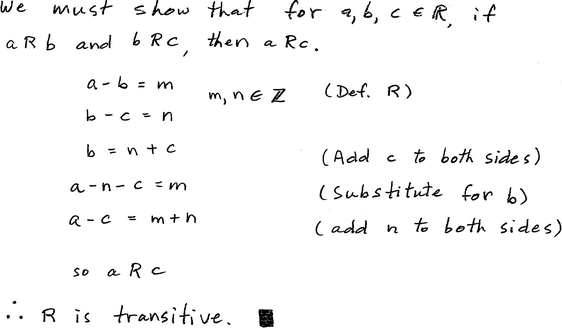 We must show that for a, b, c ∈ ℝ, if
a R b and b R c, then a R c.
a - b = m
m, n ∈ ℤ (Def. R)
b - c = n
b = n + c (Add c to both sides)
a - n - c = m (Substitute for b)
a - c = m + n (add n to both sides)
so a R c
∴ R is transitive. ■